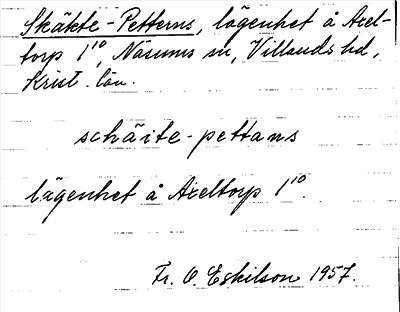 Skäkte-Petterns, lägenhet å Axel-
torp 1¹⁰, Näsums sn, Villands hd,
Krist. län.
schäite-pettans
lägenhet å Axeltorp 1¹⁰.
Fr. O. Eskilson 1957.